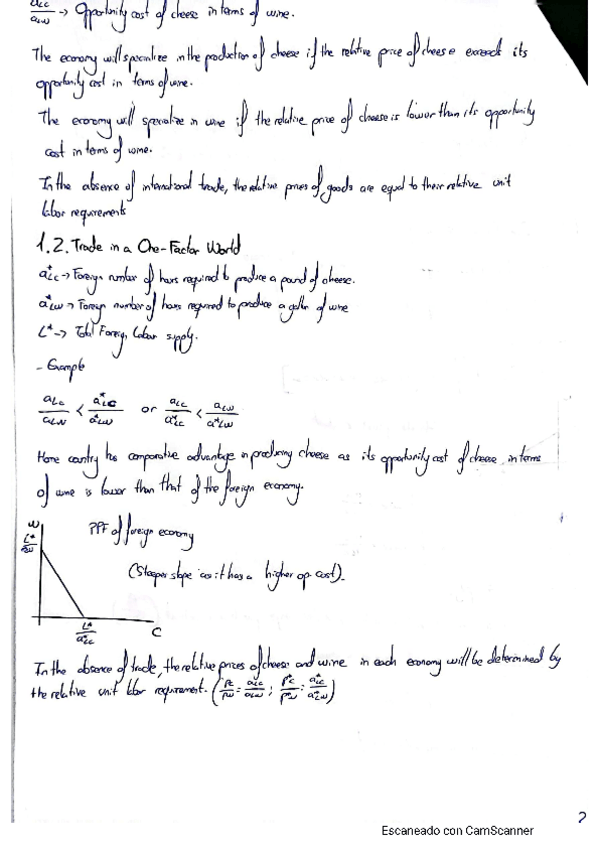 aLC/aLW → Opportunity cost of cheese in terms of wine.
The economy will specialize in the production of cheese if the relative price of cheese exceeds its
opportunity cost in terms of wine.
The economy will specialize in wine if the relative price of cheese is lower than its opportunity
cost in terms of wine.
In the absence of international trade, the relative prices of goods are equal to their relative unit
labor requirements
1.2. Trade in a One-Factor World
a*LC → Foreign number of hours required to produce a pound of cheese.
a*LW → Foreign number of hours required to produce a gallon of wine
L* → Total Foreign Labour supply.
- Example
aLC/aLW < a*LC/a*LW or aLC/a*LC < aLW/a*LW
Home country has comparative advantage in producing cheese as its opportunity cost of cheese in terms
of wine is lower than that of the foreign economy.
W
PPF of foreign economy
L*/a*LW
(Steeper slope as it has a higher op. cost).
L*/a*LC
C
In the absence of trade, the relative prices of cheese and wine in each economy will be determined by
the relative unit labor requirement. (Pc/Pw = aLC/aLW ; P*c/P*w = a*LC/a*LW)
2
Escaneado con CamScanner